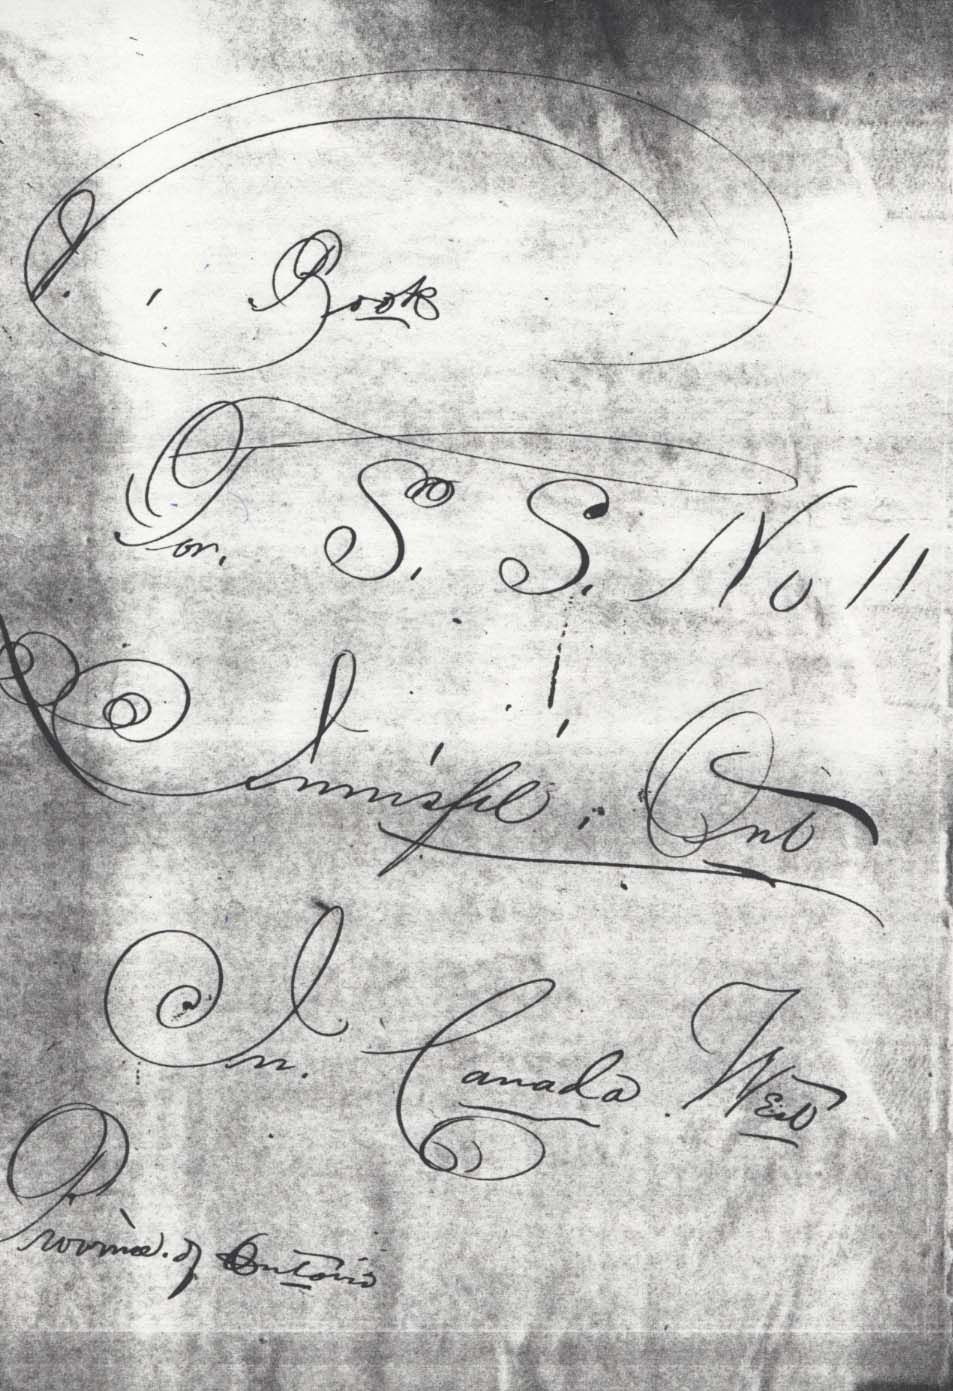 Book
For. S. S. No 11
Innisfil. Ont
In. Canada. West
Province. of Ontario